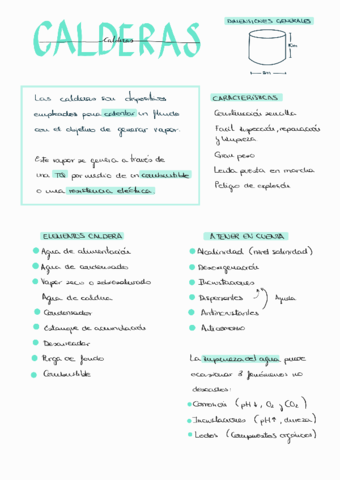 CALDERAS
Calderas
DIMENSIONES GENERALES
Las calderas son dispositivos
empleados para calentar un fluido
con el objetivo de generar vapor.
Este vapor se genera a través de
una por medio de un combustible
o una resistencia eléctrica.
CARACTERÍSTICAS
Construcción sencilla
Fácil inspección, reparación
y limpieza
Gran peso
Lenta puesta en marcha
Peligro de explosión
ELEMENTOS CALDERA
Agua de alimentación
Agua de condensado
Vapor seco o sobresaturado
Agua de caldera
Condensador
Estanque de acumulación
Desaireador
Purga de fondo
Combustible
A TENER EN CUENTA
Alcalinidad (nivel salinidad)
Desoxigenación
Incrustaciones
Dispersantes
Ayuda
Antiincrustantes
Anticorrosivo
La impureza del agua puede
ocasionar 3 fenómenos no
deseados:
Corrosión (pH↓, O₂ y CO₂)
Incrustaciones (pH↑, dureza)
Lodos (compuestos orgánicos)